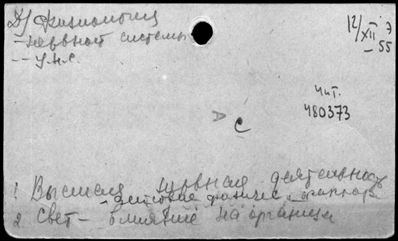 Д) Физиология
12/XII Э
- нервной системы
- 55
-- у.н.с.
Чит.
480373
А
С
1 Высшая нервная деятельность
2 Свет - влияние на организм